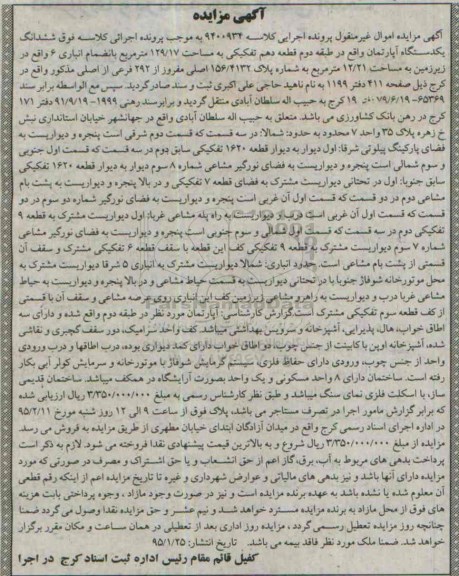 آگهی مزایده
آگهی مزایده اموال غیرمنقول پرونده اجرایی کلاسه ۹۴۰۰۹۳۴ به موجب پرونده اجرائی کلاسه فوق ششدانگ
یکدستگاه آپارتمان واقع در طبقه دوم قطعه دهم تفکیکی به مساحت ۱۲۹/۱۷ مترمربع بانضمام انباری ۶ واقع در
زیرزمین به مساحت ۱۲/۲۱ مترمربع به شماره پلاک ۱۵۶/۴۱۳۲ اصلی مفروز از ۲۹۲ فرعی از اصلی مذکور واقع در
کرج ذیل صفحه ۴۱۱ دفتر ۱۱۹۹ به نام ناهید حاجی علی اکبری ثبت و سند صادر گردید. سپس مع الواسطه برابر سند
۶۵۳۶۹-۰۷۹/۶/۱۹ ۱۹ کرج به حبیب اله سلطان آبادی منتقل گردید و برابر سند رهنی ۱۹۹۹-۹۱/۹/۱۹ دفتر ۱۷۱
کرج در رهن بانک کشاورزی می باشد. متعلق به حبیب اله سلطان آبادی واقع در جهانشهر خیابان استانداری نبش
خ زهره پلاک ۳۵ واحد ۷ محدود به حدود: شمالا: در سه قسمت که قسمت دوم شرقی است پنجره و دیواریست به
فضای پارکینگ پیلوتی شرقا: اول دیوار به دیوار قطعه ۱۶۲۰ تفکیکی سابق دوم در سه قسمت که قسمت اول جنوبی
و سوم شمالی است پنجره و دیواریست به فضای نورگیر مشاعی شماره ۸ سوم دیوار به دیوار قطعه ۱۶۲۰ تفکیکی
سابق جنوبا: اول در تحتانی دیواریست مشترک به فضای قطعه ۷ تفکیکی و در بالا پنجره و دیواریست به پشت بام
مشاعی دوم در دو قسمت که قسمت اول آن غربی است پنجره و دیواریست به فضای نورگیر مشاعی شماره دو سوم در دو
قسمت که قسمت اول آن غربی است درب و دیواریست به راه پله مشاعی غربا: اول دیواریست مشترک به قطعه ۹
تفکیکی دوم در سه قسمت که قسمت اول شمالی و سوم جنوبی است پنجره و دیواریست به فضای نورگیر مشاعی
شماره ۷ سوم دیواریست مشترک به قطعه ۹ تفکیکی کف این قطعه با سقف قطعه ۶ تفکیکی مشترک و سقف آن
قسمتی از پشت بام مشاعی است. حدود انباری: شمالا دیواریست مشترک به انباری ۵ شرقا دیواریست مشترک به
محل موتورخانه شوفاژ جنوبا با در تحتانی دیواریست به قسمت حیاط مشاعی و در بالا پنجره و دیواریست به حیاط
مشاعی غربا درب و دیواریست به راهرو مشاعی زیرزمین کف این انباری روی عرصه مشاعی و سقف آن با قسمتی
از کف قطعه سوم تفکیکی مشترک است گزارش کارشناسی: آپارتمان مورد نظر در طبقه دوم واقع شده و دارای سه
اطاق خواب، هال، پذیرایی، آشپزخانه و سرویس بهداشتی میباشد. کف واحد سرامیک، دور سقف گچبری و نقاشی
شده، آشپزخانه اوپن با کابینت از جنس چوب، دو اطاق خواب دارای کمد دیواری بوده، درب اطاقها و درب ورودی
واحد از جنس چوب، ورودی دارای حفاظ فلزی، سیستم گرمایش شوفاژ با موتورخانه و سرمایش کولر آبی بکار
رفته است. ساختمان دارای ۸ واحد مسکونی و یک واحد بصورت آرایشگاه در همکف میباشد. ساختمان قدیمی
ساز، با اسکلت فلزی نمای سنگ میباشد و طبق نظر کارشناس رسمی به مبلغ ۳/۳۵۰/۰۰۰/۰۰۰ ریال ارزیابی شده
که برابر گزارش مامور اجرا در تصرف مستاجر می باشد، پلاک فوق از ساعت ۹ الی ۱۲ روز شنبه مورخ ۹۵/۲/۱۱
در اداره اجرای اسناد رسمی کرج واقع در میدان آزادگان ابتدای خیابان مطهری از طریق مزایده به فروش می رسد.
مزایده از مبلغ ۳/۳۵۰/۰۰۰/۰۰۰ ریال شروع و به بالاترین قیمت پیشنهادی نقدا فروخته می شود. لازم به ذکر است
پرداخت بدهی های مربوط به آب، برق، گاز اعم از حق انشعاب و یا حق اشتراک و مصرف در صورتی که مورد
مزایده دارای آنها باشد و نیز بدهی های مالیاتی و عوارض شهرداری و غیره تا تاریخ مزایده اعم از اینکه رقم قطعی
آن معلوم شده یا نشده باشد به عهده برنده مزایده است و نیز در صورت وجود مازاد، وجوه پرداختی بابت هزینه
های فوق از محل مازاد به برنده مزایده مسترد خواهد شد و نیم عشر و حق مزایده نقدا وصول می گردد ضمنا
چنانچه روز مزایده تعطیل رسمی گردد، مزایده روز اداری بعد از تعطیلی در همان ساعت و مکان مقرر برگزار
خواهد شد. ضمنا ملک مورد نظر فاقد بیمه می باشد. تاریخ انتشار: ۹۵/۱/۲۵
کفیل قائم مقام رئیس اداره ثبت اسناد کرج در اجرا